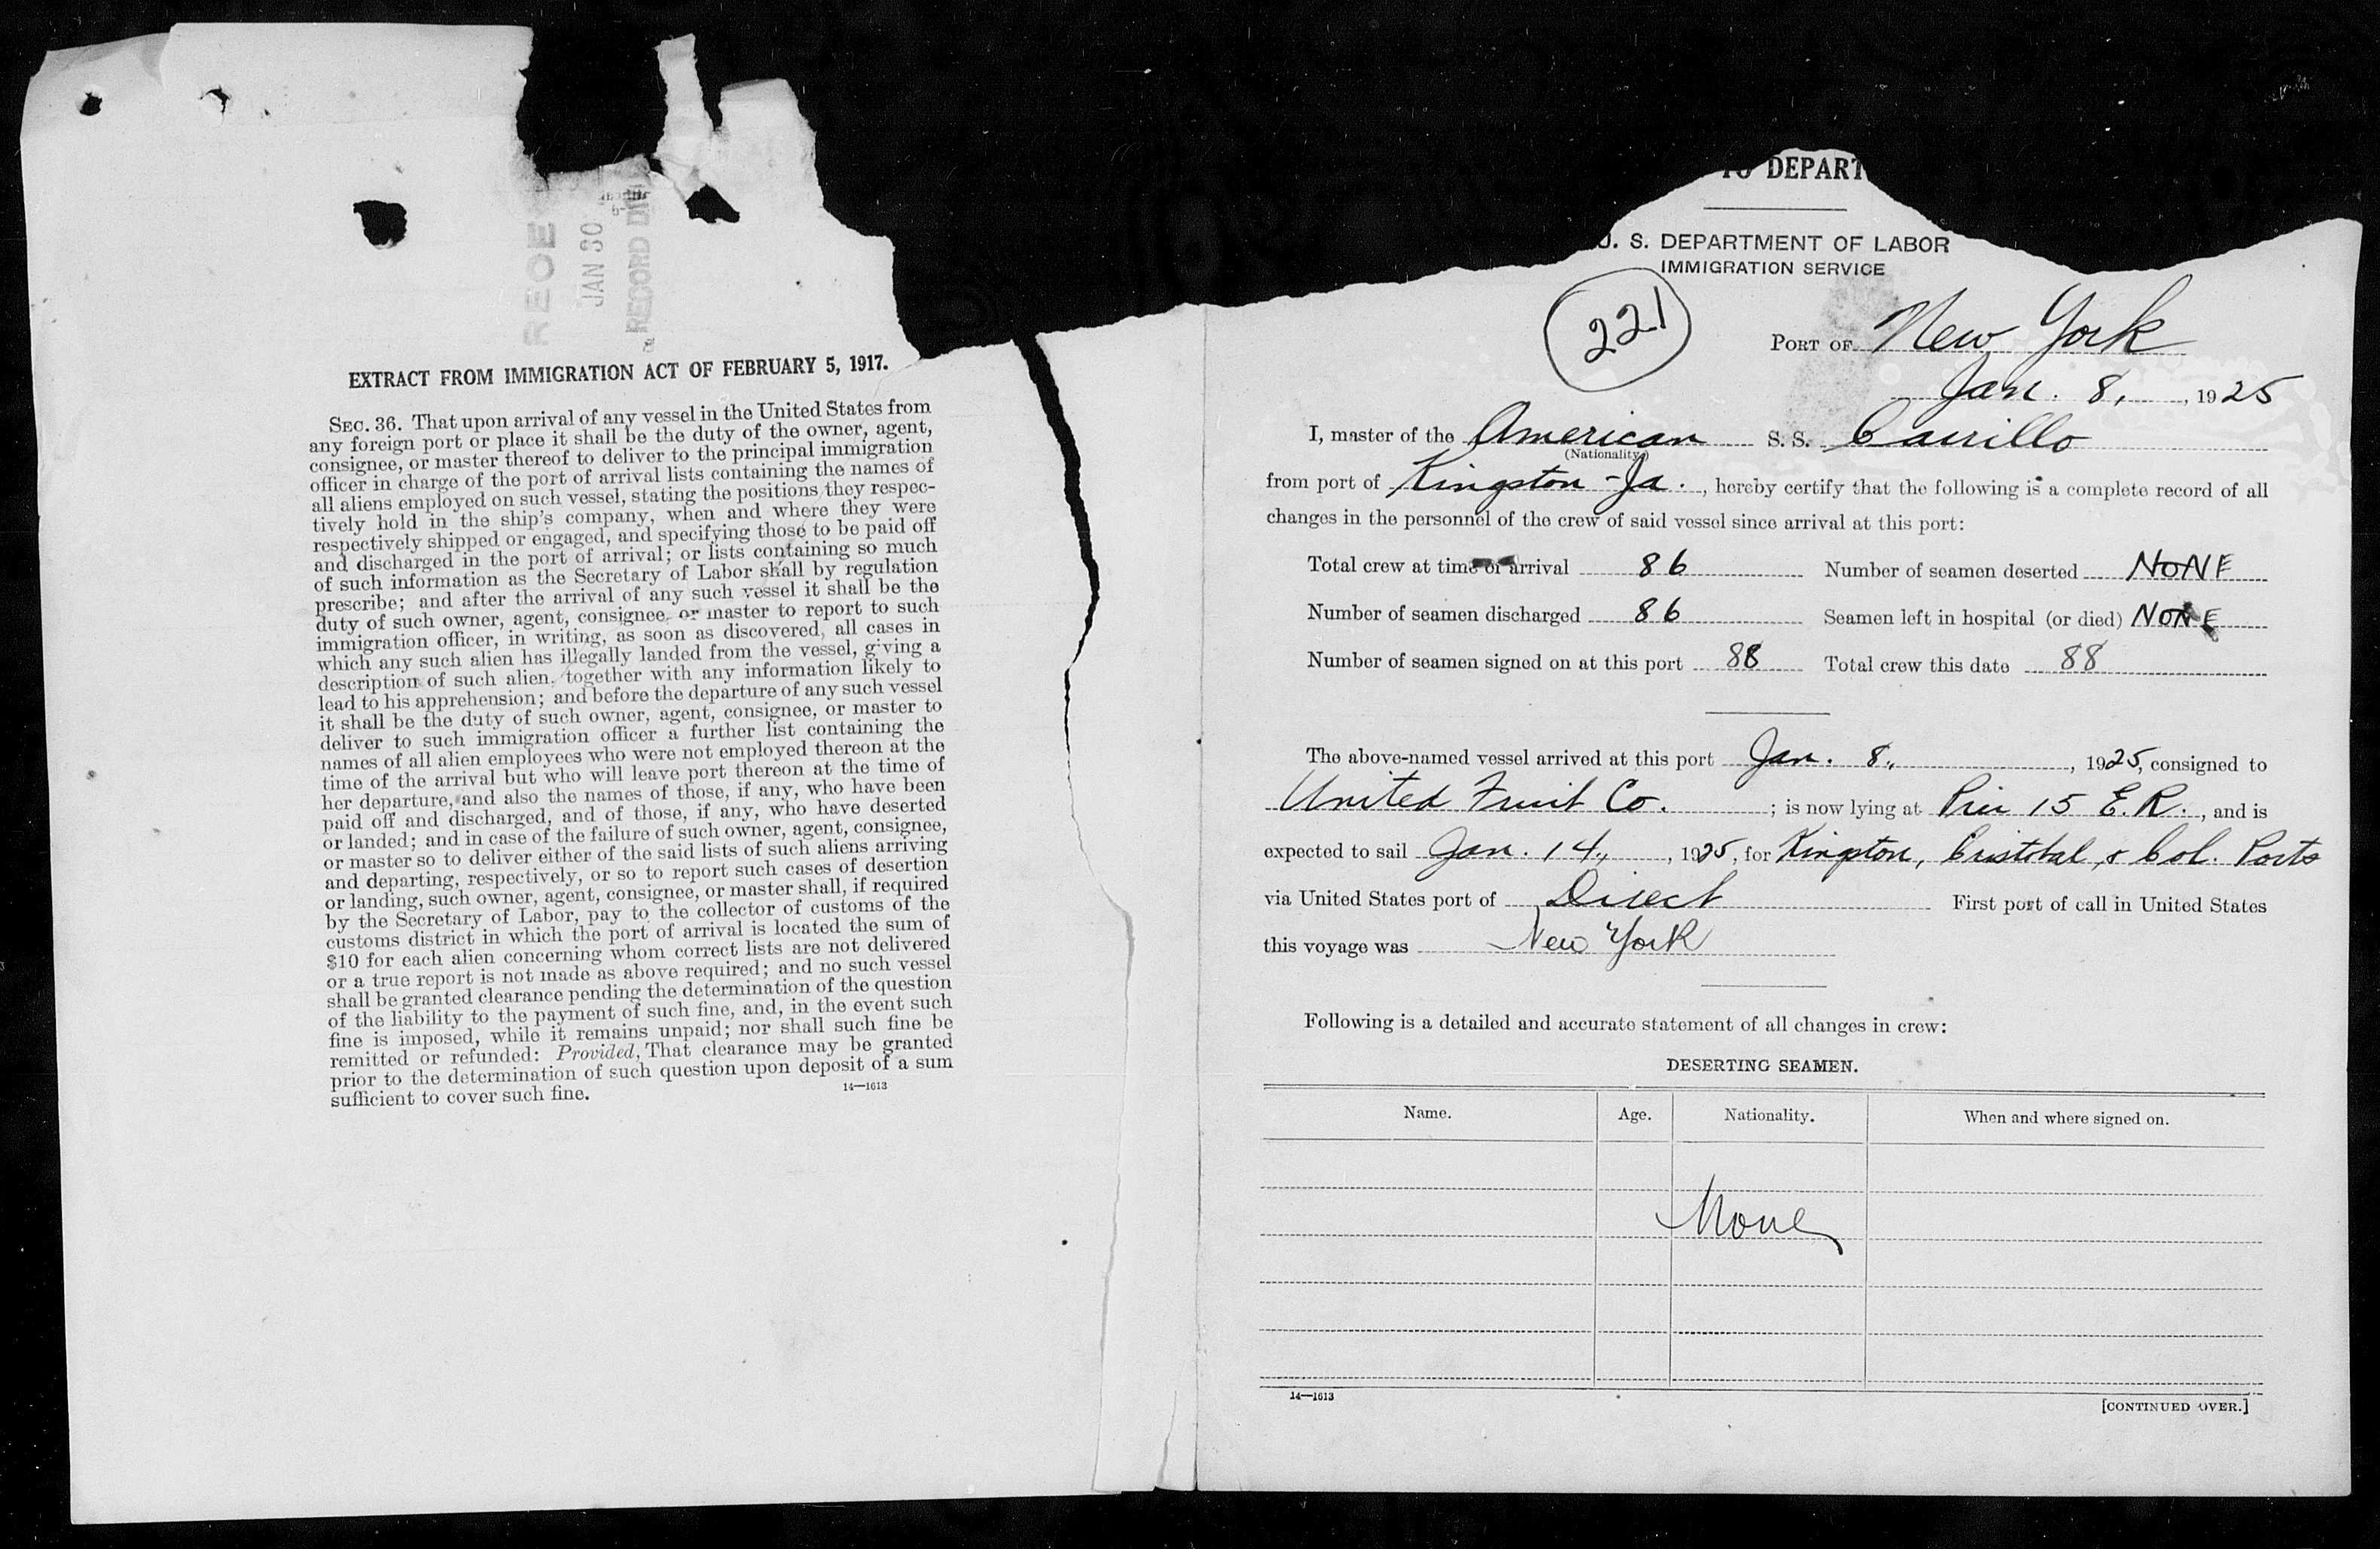 JAN 30
RECORD
EXTRACT FROM IMMIGRATION ACT OF FEBRUARY 5, 1917.
SEC. 36. That upon arrival of any vessel in the United States from
any foreign port or place it shall be the duty of the owner, agent,
consignee, or master thereof to deliver to the principal immigration
officer in charge of the port of arrival lists containing the names of
all aliens employed on such vessel, stating the positions they respec-
tively hold in the ship's company, when and where they were
respectively shipped or engaged, and specifying those to be paid off
and discharged in the port of arrival; or lists containing so much
of such information as the Secretary of Labor shall by regulation
prescribe; and after the arrival of any such vessel it shall be the
duty of such owner, agent, consignee, or master to report to such
immigration officer, in writing, as soon as discovered, all cases in
which any such alien has illegally landed from the vessel, giving a
description of such alien, together with any information likely to
lead to his apprehension; and before the departure of any such vessel
it shall be the duty of such owner, agent, consignee, or master to
deliver to such immigration officer a further list containing the
names of all alien employees who were not employed thereon at the
time of the arrival but who will leave port thereon at the time of
her departure, and also the names of those, if any, who have been
paid off and discharged, and of those, if any, who have deserted
or landed; and in case of the failure of such owner, agent, consignee,
or master so to deliver either of the said lists of such aliens arriving
and departing, respectively, or so to report such cases of desertion
or landing, such owner, agent, consignee, or master shall, if required
by the Secretary of Labor, pay to the collector of customs of the
customs district in which the port of arrival is located the sum of
$10 for each alien concerning whom correct lists are not delivered
or a true report is not made as above required; and no such vessel
shall be granted clearance pending the determination of the question
of the liability to the payment of such fine, and, in the event such
fine is imposed, while it remains unpaid; nor shall such fine be
remitted or refunded: Provided, That clearance may be granted
prior to the determination of such question upon deposit of a sum
sufficient to cover such fine.
14—1613
TO DEPART
U. S. DEPARTMENT OF LABOR
IMMIGRATION SERVICE
221
PORT OF New York
Jan. 8, , 1925
I, master of the American S. S. Carrillo
(Nationality)
from port of Kingston - Ja. , hereby certify that the following is a complete record of all
changes in the personnel of the crew of said vessel since arrival at this port:
Total crew at time of arrival 86 Number of seamen deserted NONE
Number of seamen discharged 86 Seamen left in hospital (or died) NONE
Number of seamen signed on at this port 88 Total crew this date 88
The above-named vessel arrived at this port Jan. 8, , 1925, consigned to
United Fruit Co. ; is now lying at Pier 15 E. R. , and is
expected to sail Jan. 14, , 1925, for Kingston, Cristobal, & Col. Ports
via United States port of Direct First port of call in United States
this voyage was New York
Following is a detailed and accurate statement of all changes in crew:
DESERTING SEAMEN.
Name. Age. Nationality. When and where signed on.
None
14—1613
[CONTINUED OVER.]